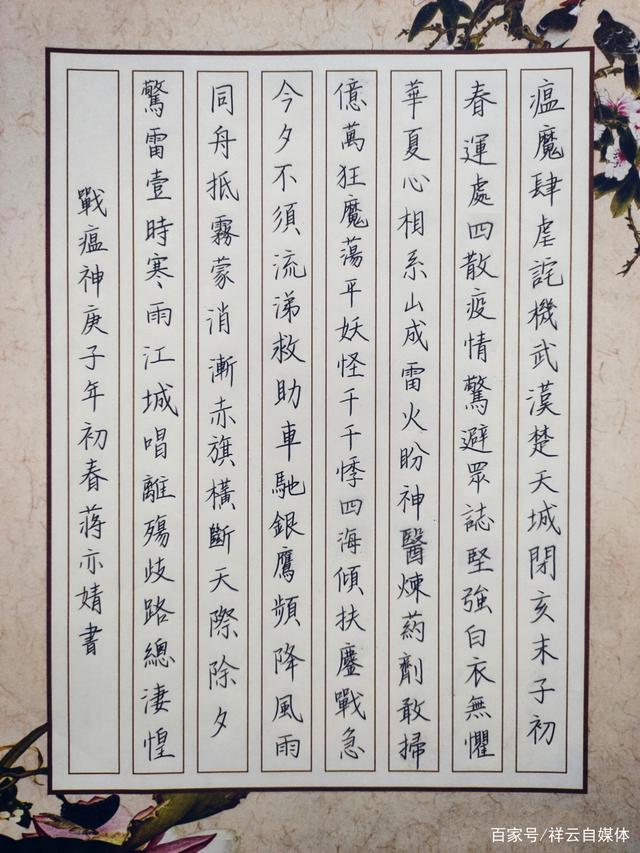 瘟魔肆虐詫機武漢楚天城閉亥末子初
春運處四散疫情驚避眾誌堅強白衣無懼
華夏心相系山成雷火盼神醫煉药劑敢掃
億萬狂魔蕩平妖怪千千悸四海傾扶鏖戰急
今夕不須流涕救助車馳銀鷹頻降風雨
同舟抵霧蒙消漸赤旗橫斷天際除夕
驚雷壹時寒雨江城唱離殤歧路總淒惶
戰瘟神庚子年初春蔣亦婧書
百家号/祥云自媒体